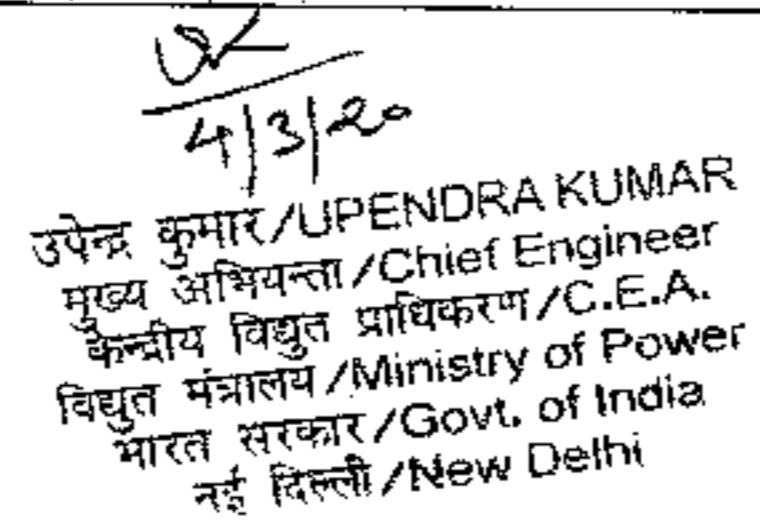 4/3/20
उपेन्द्र कुमार/UPENDRA KUMAR
मुख्य अभियन्ता/Chief Engineer
केन्द्रीय विद्युत प्राधिकरण/C.E.A.
विद्युत मंत्रालय/Ministry of Power
भारत सरकार/Govt. of India
नई दिल्ली/New Delhi